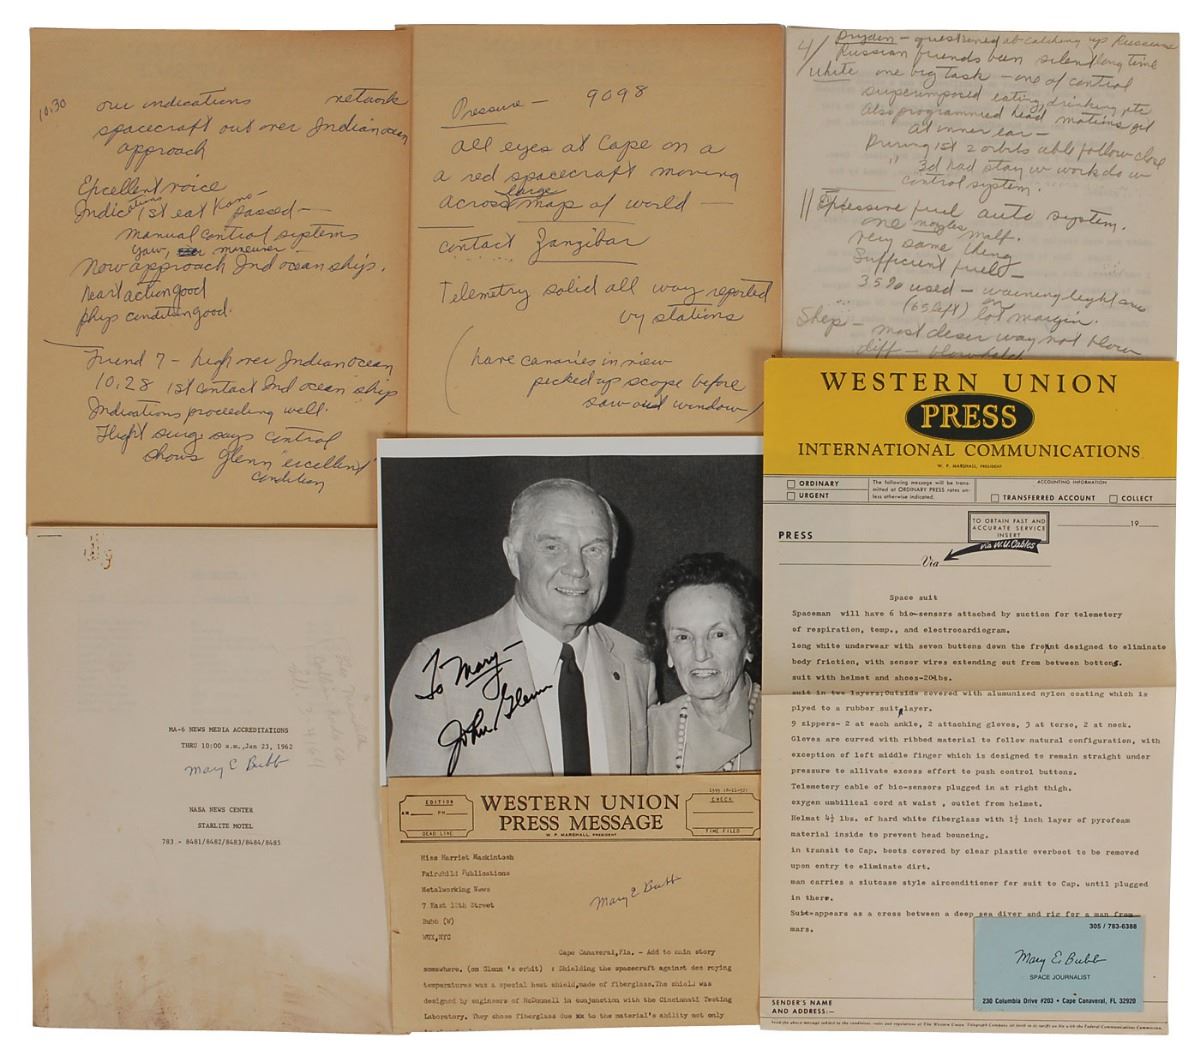 10.30 our indications network
spacecraft out over Indian ocean
approach
Excellent voice
Indications 1st eat Kano passed—
manual control systems
yaw, maneuver
Now approach Ind ocean ships.
heart action good
phys condition good.
Friend 7 - high over Indian Ocean
10.28 1st contact Ind ocean ships
Indications proceeding well.
Flight surg. says control
shows Glenn "excellent"
condition
Pressure — 9098
all eyes at Cape on a
a red spacecraft moving
across large map of world —
contact Zanzibar
Telemetry solid all way reported
by stations
(have canaries in view
picked up scope before
saw out window)
4/ Dryden - questioned ab catching up Russians
Russian friends been silent long time
White one big task - one of control
superimposed eating, drinking, etc
also programmed head motions get
at inner ear -
During 1st 2 orbits able follow close
" 3d had stay w work do w
control system.
|| Excessive fuel auto system.
one nozzle malf.
very same thing
Sufficient fuel -
35% used - warning light on
(65 left) lot margin.
Shep - most deser way not blow
diff -
WESTERN UNION
PRESS
INTERNATIONAL COMMUNICATIONS
W. P. MARSHALL, PRESIDENT
ORDINARY
URGENT
The following message will be trans-
mitted at ORDINARY PRESS rates un-
less otherwise indicated.
ACCOUNTING INFORMATION
TRANSFERRED ACCOUNT COLLECT
TO OBTAIN FAST AND
ACCURATE SERVICE
INSERT
via W.U. Cables
19
PRESS
Via
Space suit
Spaceman will have 6 bio-sensors attached by suction for telemetery
of respiration, temp., and electrocardiogram.
long white underwear with seven buttons down the front designed to eliminate
body friction, with sensor wires extending out from between bottons.
suit with helmet and shoes-20lbs.
suit in two layers;Outside covered with alumunized nylon coating which is
plyed to a rubber suit layer.
9 zippers- 2 at each ankle, 2 attaching gloves, 3 at torso, 2 at neck.
Gloves are curved with ribbed material to follow natural configuration, with
exception of left middle finger which is designed to remain straight under
pressure to allivate excess effort to push control buttons.
Telemetery cable of bio-sensors plugged in at right thigh.
oxygen umbilical cord at waist , outlet from helmet.
Helmat 4½ lbs. of hard white fiberglass with 1½ inch layer of pyrofoam
material inside to prevent head bouncing.
in transit to Cap. boots covered by clear plastic overboot to be removed
upon entry to eliminate dirt.
man carries a siutcase style airconditioner for suit to Cap. until plugged
in there.
Suit-appears as a cross between a deep sea diver and rig for a man from
mars.
SENDER'S NAME
AND ADDRESS:—
305 / 783-6388
Mary E. Bubb
SPACE JOURNALIST
230 Columbia Drive #203 • Cape Canaveral, FL 32920
To Mary—
John Glenn
MA-6 NEWS MEDIA ACCREDITATIONS
THRU 10:00 a.m.,Jan 23, 1962
Mary E Bubb
NASA NEWS CENTER
STARLITE MOTEL
783 - 8481/8482/8483/8484/8485
EDITION
AM — PM —
DEAD LINE
WESTERN UNION
PRESS MESSAGE
W. P. MARSHALL, PRESIDENT
CHECK
TIME FILED
Miss Harriet Mackintosh
Fairchild Publications
Metalworking News
7 East 12th Street
Bubb (W)
WUX,NYC
Mary E Bubb
Cape Canaveral,Fla. - Add to main story
somewhere. (on Glenn 's orbit) : Shielding the spacecraft against des roying
temperatures was a special heat shield,made of fiberglass.The shield was
designed by engineers of McDonnell in conjunction with the Cincinnati Testing
Laboratory. They chose fiberglass due to the material's ability not only